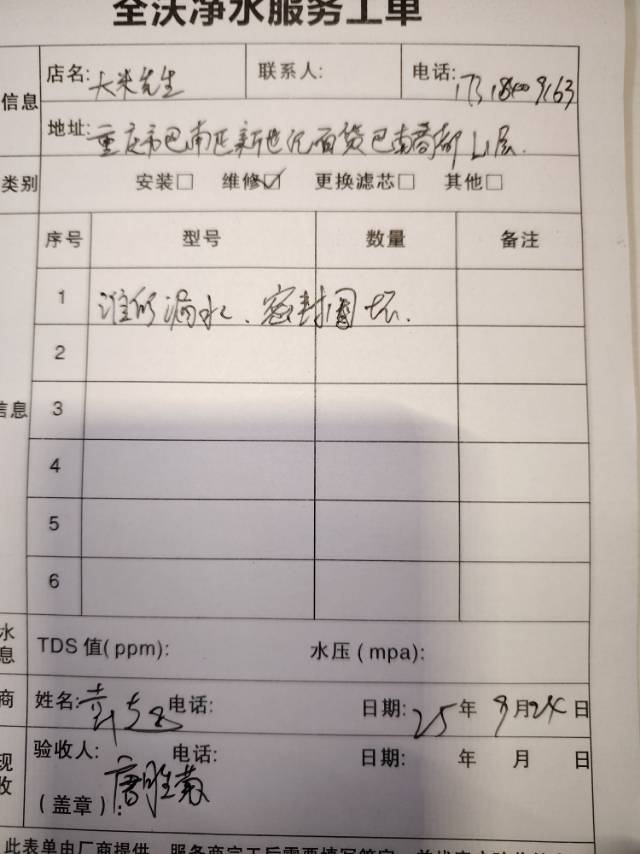 全沃净水服务工单
信息
店名: 大米先生 联系人: 电话:
地址: 重庆市巴南区新世纪百货巴南商都L1层.
类别 安装□ 维修☑ 更换滤芯□ 其他□
序号 型号 数量 备注
1 漏水、密封圈坏.
2
信息 3
4
5
6
水 息 TDS 值(ppm): 水压(mpa):
商 姓名: 电话: 日期: 25年 9月24日
现 收 验收人: 电话: 日期: 年 月 日
(盖章): 唐胜
此表单由厂商提供，服务商完工后需要填写签字